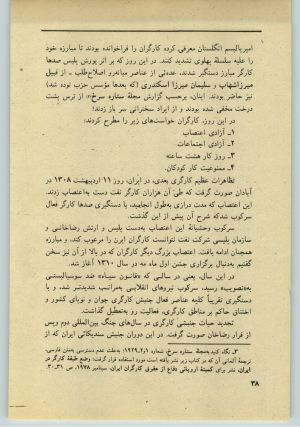 امپریالیسم انگلستان معرفی کرده کارگران را فراخوانده بودند تا مبارزه خود
را علیه سلسله پهلوی تشدید کنند. در این روز که بر اثر یورش پلیس صدها
کارگر مبارز دستگیر شدند، عده‌ئی از عناصر میانه‌رو اصلاح‌طلب ـ از قبیل
میرزاشهاب و سلیمان میرزا اسکندری (که بعدها مؤسس حزب توده شد)
نیز حاضر بودند. اینان، برحسب گزارش مجلهٔ ستاره سرخ، از ترس پشت
درخت مخفی شده بودند و از ایراد سخنرانی سر باز زدند!
در این روز، کارگران خواست‌های زیر را مطرح کردند:
۱ـ آزادی اعتصاب
۲ـ آزادی اجتماعات
۳ـ روز کار هشت ساعته
۴ـ ممنوعیت کار کودکان.
تظاهرات عظیم کارگری بعدی، در ایران، روز ۱۱ اردیبهشت ۱۳۰۸ در
آبادان صورت گرفت که طی آن هزاران کارگر نفت دست به‌اعتصاب زدند.
این اعتصاب که مدت درازی به‌طول انجامید، با دستگیری صدها کارگر فعال
سرکوب شد که شرح آن پیش از این گذشت.
سرکوب وحشیانهٔ این اعتصاب به‌دست پلیس و ارتش رضاخانی و
سازمان پلیسی شرکت نفت نتوانست کارگران ایران را مرعوب کند، و مبارزه
همچنان ادامه یافت. اعتصاب بزرگ دیگر کارگران که در بالا از آن نیز سخن
گفتیم به‌دنبال برگزاری جشن اول ماه مه در سال ۱۳۱۰ آغاز شد.
در این سال، یعنی در سالی که «قانون سیاه» ضد سوسیالیستی
به‌تصویب رسید، سرکوب نیروهای انقلابی به‌مراتب شدیدتر شد، و با
دستگیری تقریباً کلیه عناصر فعال جنبش کارگری جوان و نوپای کشور و
اختناق حاکم بر مناطق کارگری، فعالیت رو به‌تعطیل گذاشت.
تجدید حیات جنبش کارگری در سال‌های جنگ بین‌المللی دوم و پس
از فرار رضاخان صورت گرفت. در این دوران جنبش سندیکائی ایران که از
۳ـ نگاه کنید به‌مجلهٔ ستاره سرخ، شماره ۱ و ۲، ۱۹۲۹؛ به‌علت عدم دسترسی به‌متن فارسی،
ترجمهٔ آلمانی آن که در کتاب زیر نشر یافته است مورد استفاده قرار گرفت: وضع طبقهٔ کارگر در
ایران، نشر برای کمیتهٔ اروپائی دفاع از حقوق کارگران ایران، سپتامبر ۱۹۷۸، ص ۳۱ـ۳۰.
۳۸